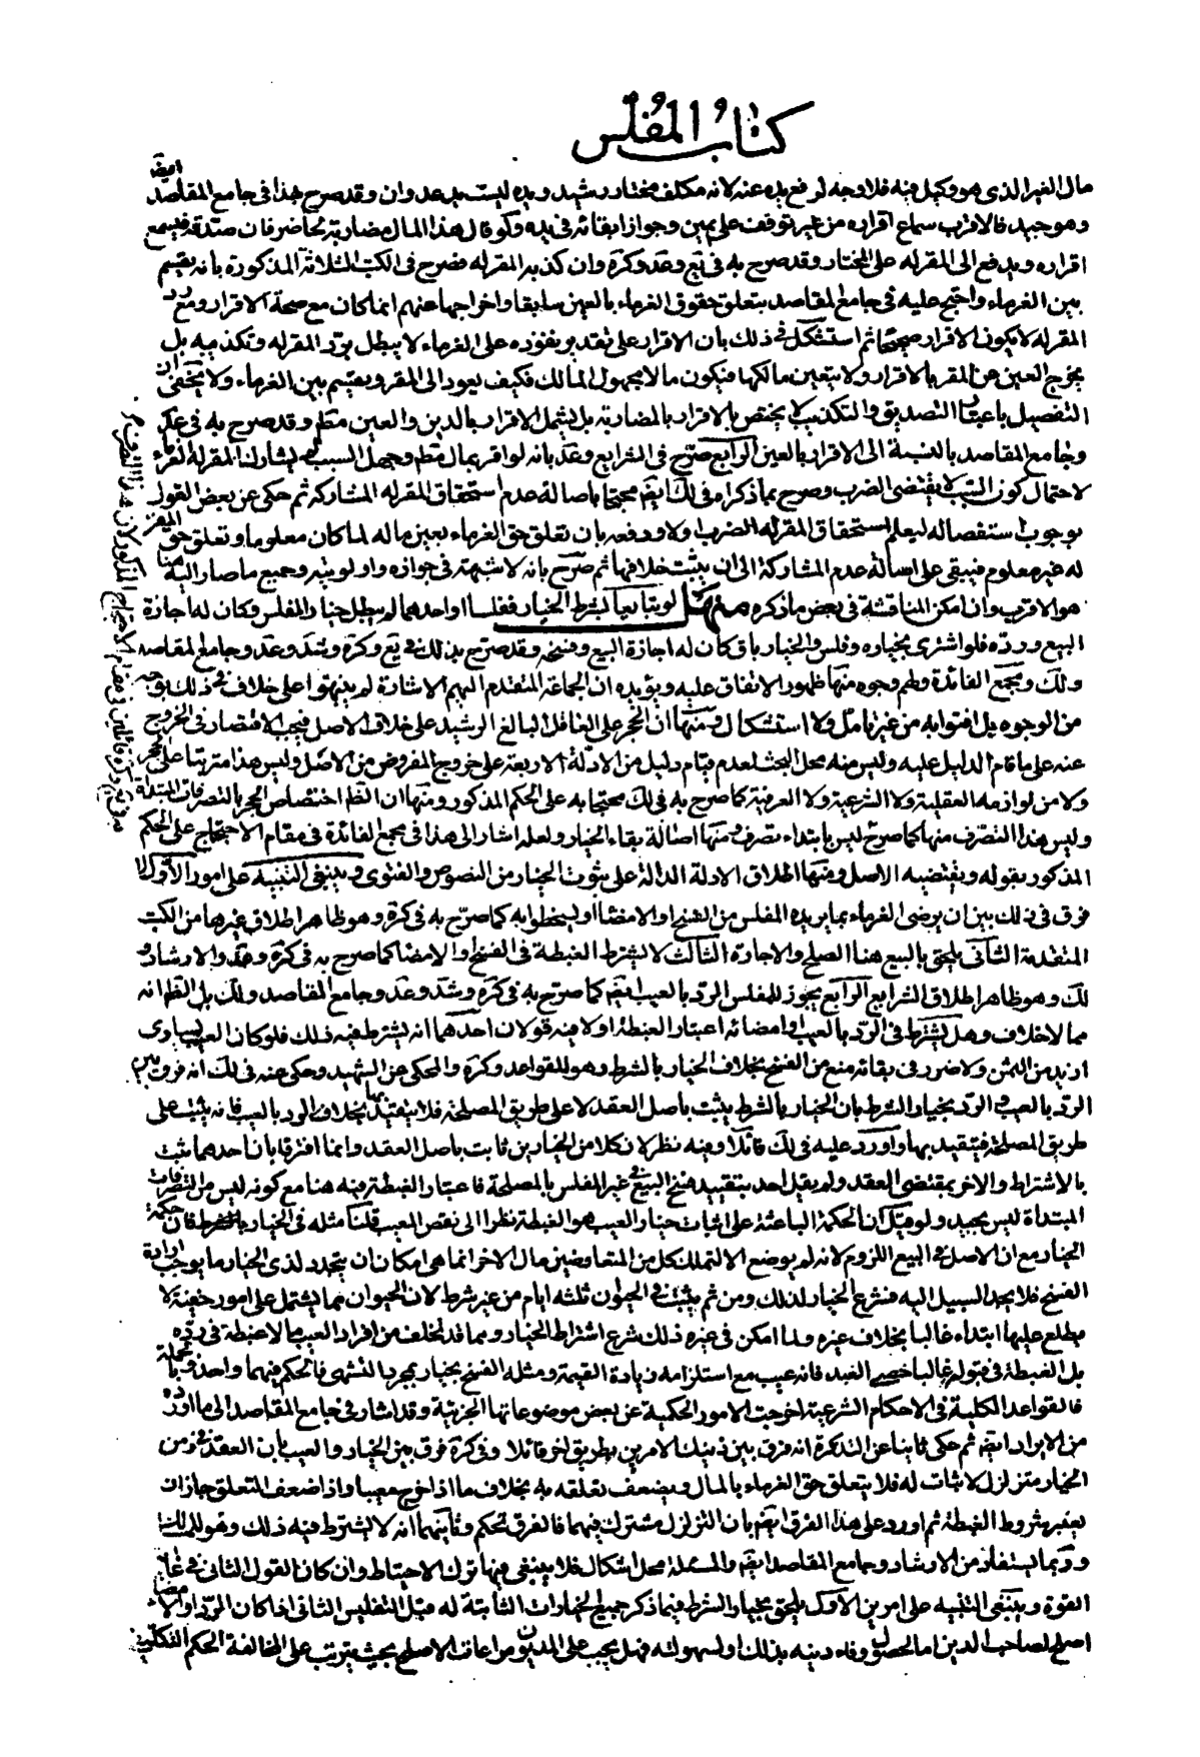 كتاب المفلس
مال الغير الذى هو وكيل فيه فلا وجه لرفع يده عنه لانه مكلف مختار رشيد ويده ليست يد عدوان وقد صرح بهذا فى جامع المقاصد ايضا
وهو جيد فالاقرب سماع اقراره من غير توقف على يمين وجواز ابقائه فى يده ولو قال هذا المال مضاربة لحاضر فان صدقه فيسمع
اقراره ويدفع الى المقر له على المختار وقد صرح به فى يع وعد وكره وان كذبه المقر له فصرح فى الكتب الثلاثة المذكورة بانه يقسم
بين الغرماء واحتج عليه فى جامع المقاصد بتعلق حقوق الغرماء بالعين سابقا واخراجها عنهم انما كان مع صحة الاقرار ومع رد
المقر له لا يكون الاقرار صحيحا ثم استشكل فى ذلك بان الاقرار على تقدير نفوذه على الغرماء لا يبطل برد المقر له وتكذيبه بل
يخرج العين عن المقر بالاقرار ولا يتعين مالكها فيكون مالا مجهول المالك فكيف يعود الى المقر ويقسم بين الغرماء ولا يخفى ان
التفصيل باعتبار التصديق والتكذيب لا يختص بالاقرار بالمضاربة بل يشمل الاقرار بالدين والعين مطم وقد صرح به فى عد وكره
وجامع المقاصد بالنسبة الى الاقرار بالعين الرابع صرح فى الشرايع وعد بانه لو اقر بمال مطم وجهل السبب لم يشارك المقر له الغرماء
لاحتمال كون السبب لا يقتضى الضرب وصرح بما ذكراه فى لك ايضم محتجا باصالة عدم استحقاق المقر له المشاركة ثم حكى عن بعض القول
بوجوب استفصاله ليعلم استحقاق المقر له الضرب اولا ودفعه بان تعلق حق الغرماء بعين ماله لما كان معلوما وتعلق حق المقر
له غير معلوم فيبقى على اصالة عدم المشاركة الى ان يثبت خلافها ثم صرح بانه لا شبهة فى جوازه واولويته وجميع ما صار اليه هنا
هو الاقرب وان امكن المناقشة فى بعض ما ذكره منهل لو تبايعا بشرط الخيار ففلسا او احدهما لم يبطل خيار المفلس وكان له اجازة
البيع ورده فلو اشترى بخياره وفلس والخيار باق كان له اجازة البيع وفسخه وقد صرح بذلك فى يع وكره وشد وعد وجامع المقاصد
ولك ومجمع الفائدة ولهم وجوه منها ظهور الاتفاق عليه ويؤيده ان الجماعة المتقدم اليهم الاشارة لم ينبهوا على خلاف فى ذلك بوجه
من الوجوه بل افتوا به من غير تامل ولا استشكال ومنها ان الحجر على العاقل البالغ الرشيد على خلاف الاصل فيجب الاقتصار فى الخروج
عنه على ما قام الدليل عليه وليس منه محل البحث لعدم قيام دليل من الادلة الاربعة على خروج المفروض من الاصل وليس هذا مترتبا على الحجر
ولا من لوازمه العقلية ولا الشرعية ولا العرفية كما صرح به فى لك محتجا به على الحكم المذكور ومنها ان الظم اختصاص الحجر بالتصرفات المبتداة
وليس هذا التصرف منها كما صرح ليس بابتداء تصرف ومنها اصالة بقاء الخيار ولعله اشار الى هذا فى مجمع الفائدة فى مقام الاحتجاج على الحكم
المذكور بقوله ويقتضيه الاصل ومنها اطلاق الادلة الدالة على ثبوت الخيار من النصوص والفتوى وينبغى التنبيه على امور الاول لا
فرق فى ذلك بين ان يرضى الغرماء بما يريده المفلس من الفسخ او الامضاء او يسخطوا به كما صرح به فى كره وهو ظاهر اطلاق غيرها من الكتب
المتقدمة الثانى يلحق بالبيع هنا الصلح والاجارة الثالث لا يشترط الغبطة فى الفسخ او الامضاء كما صرح به فى كره وعد والارشاد و
لك وهو ظاهر اطلاق الشرايع الرابع يجوز للمفلس الرد بالعيب ايضم كما صرح به فى كره وشد وعد وجامع المقاصد ولك بل الظم انه
مما لا خلاف وهل يشترط فى الرد بالعيب او امضائه اعتبار الغبطة اولا فيه قولان احدهما انه يشترط فيه ذلك فلو كان العيب يساوى
ازيد من الثمن ولا ضرر فى بقائه منع من الفسخ بخلاف الخيار بالشرط وهو للقواعد وكره والمحكى عن الشهيد وحكى عنه فى لك انه فرق بين
الرد بالعيب والرد بخيار الشرط بان الخيار بالشرط يثبت باصل العقد لا على طريق المصلحة فلا يتقيد بها بخلاف الرد بالعيب فانه يثبت على
طريق المصلحة فيتقيد بها واورد عليه فى لك قائلا وفيه نظر لان كلا من الخيارين ثابت باصل العقد وانما افترقا بان احدهما يثبت
بالاشتراط والاخر بمقتضى العقد ولم يقل احد بتقييد فسخ البيع فى غير المفلس بالمصلحة فاعتبار الغبطة فيه هنا مع كونه ليس من التصرفات
المبتداة ليس بجيد ولو قيل ان الحكمة الباعثة على اثبات خيار العيب هو الغبطة نظرا الى نقص العيب قلنا مثله فى الخيار بالشرط فان حكمة
الخيار مع ان الاصل فى البيع اللزوم لانه لم يوضع الا لتملك كل من المتعاوضين مال الاخر انما هى امكان ان يتجدد لذى الخيار ما يوجب ارادة
الفسخ فلا يجد السبيل اليه فشرع الخيار لذلك ومن ثم يثبت فى الحيوان ثلثه ايام من غير شرط لان الحيوان مما يشتمل على امور خفية لا
يطلع عليها ابتداء غالبا بخلاف غيره ولما امكن فى غيره ذلك شرع اشتراط الخيار ومما قد تخلف من افراد العيب ما لا غبطة فى رده
بل الغبطة فى قبوله غالبا خصى العبد فانه عيب مع استلزامه زيادة القيمة ومثله الفسخ بخيار بمجرد التشهى فالحكم فيهما واحد وبالجملة
فالقواعد الكلية فى الاحكام الشرعية اخرجت الامور الحكمية عن بعض موضوعاتها الجزئية وقد اشار فى جامع المقاصد الى ما اورده
من الايراد ايضم ثم حكى ثانيا عن التذكرة انه فرق بين ذينك الامرين بطريق اخر قائلا وفى كره فرق بين الخيار والعيب بان العقد فى زمن
الخيار متزلزل لا ثبات له فلا يتعلق حق الغرماء بالمال ويضعف تعلقه به بخلاف ما اذا خرج معيبا واذا ضعف التعلق جاز ان
يعتبر شروط الغبطة ثم اورد على هذا الفرق ايضم بان التزلزل مشترك فيهما فالفرق تحكم وثانيهما انه لا يشترط فيه ذلك وهو للمسالك
وربما يستفاد من الارشاد وجامع المقاصد ايضم والمسئلة محل اشكال فلا ينبغى فيها ترك الاحتياط وان كان القول الثانى فى غاية
القوة وينبغى التنبيه على امرين الاول يلحق بخيار الشرط فيما ذكر جميع الخيارات الثابتة له قبل التفليس الثانى اذا كان الرد او الامضاء
اصلح لصاحب الدين اما لحصول وفاء دينه بذلك او لسهولته فهل يجب على المديون مراعات الاصلح بحيث يترتب على المخالفة الحكم التكليفى